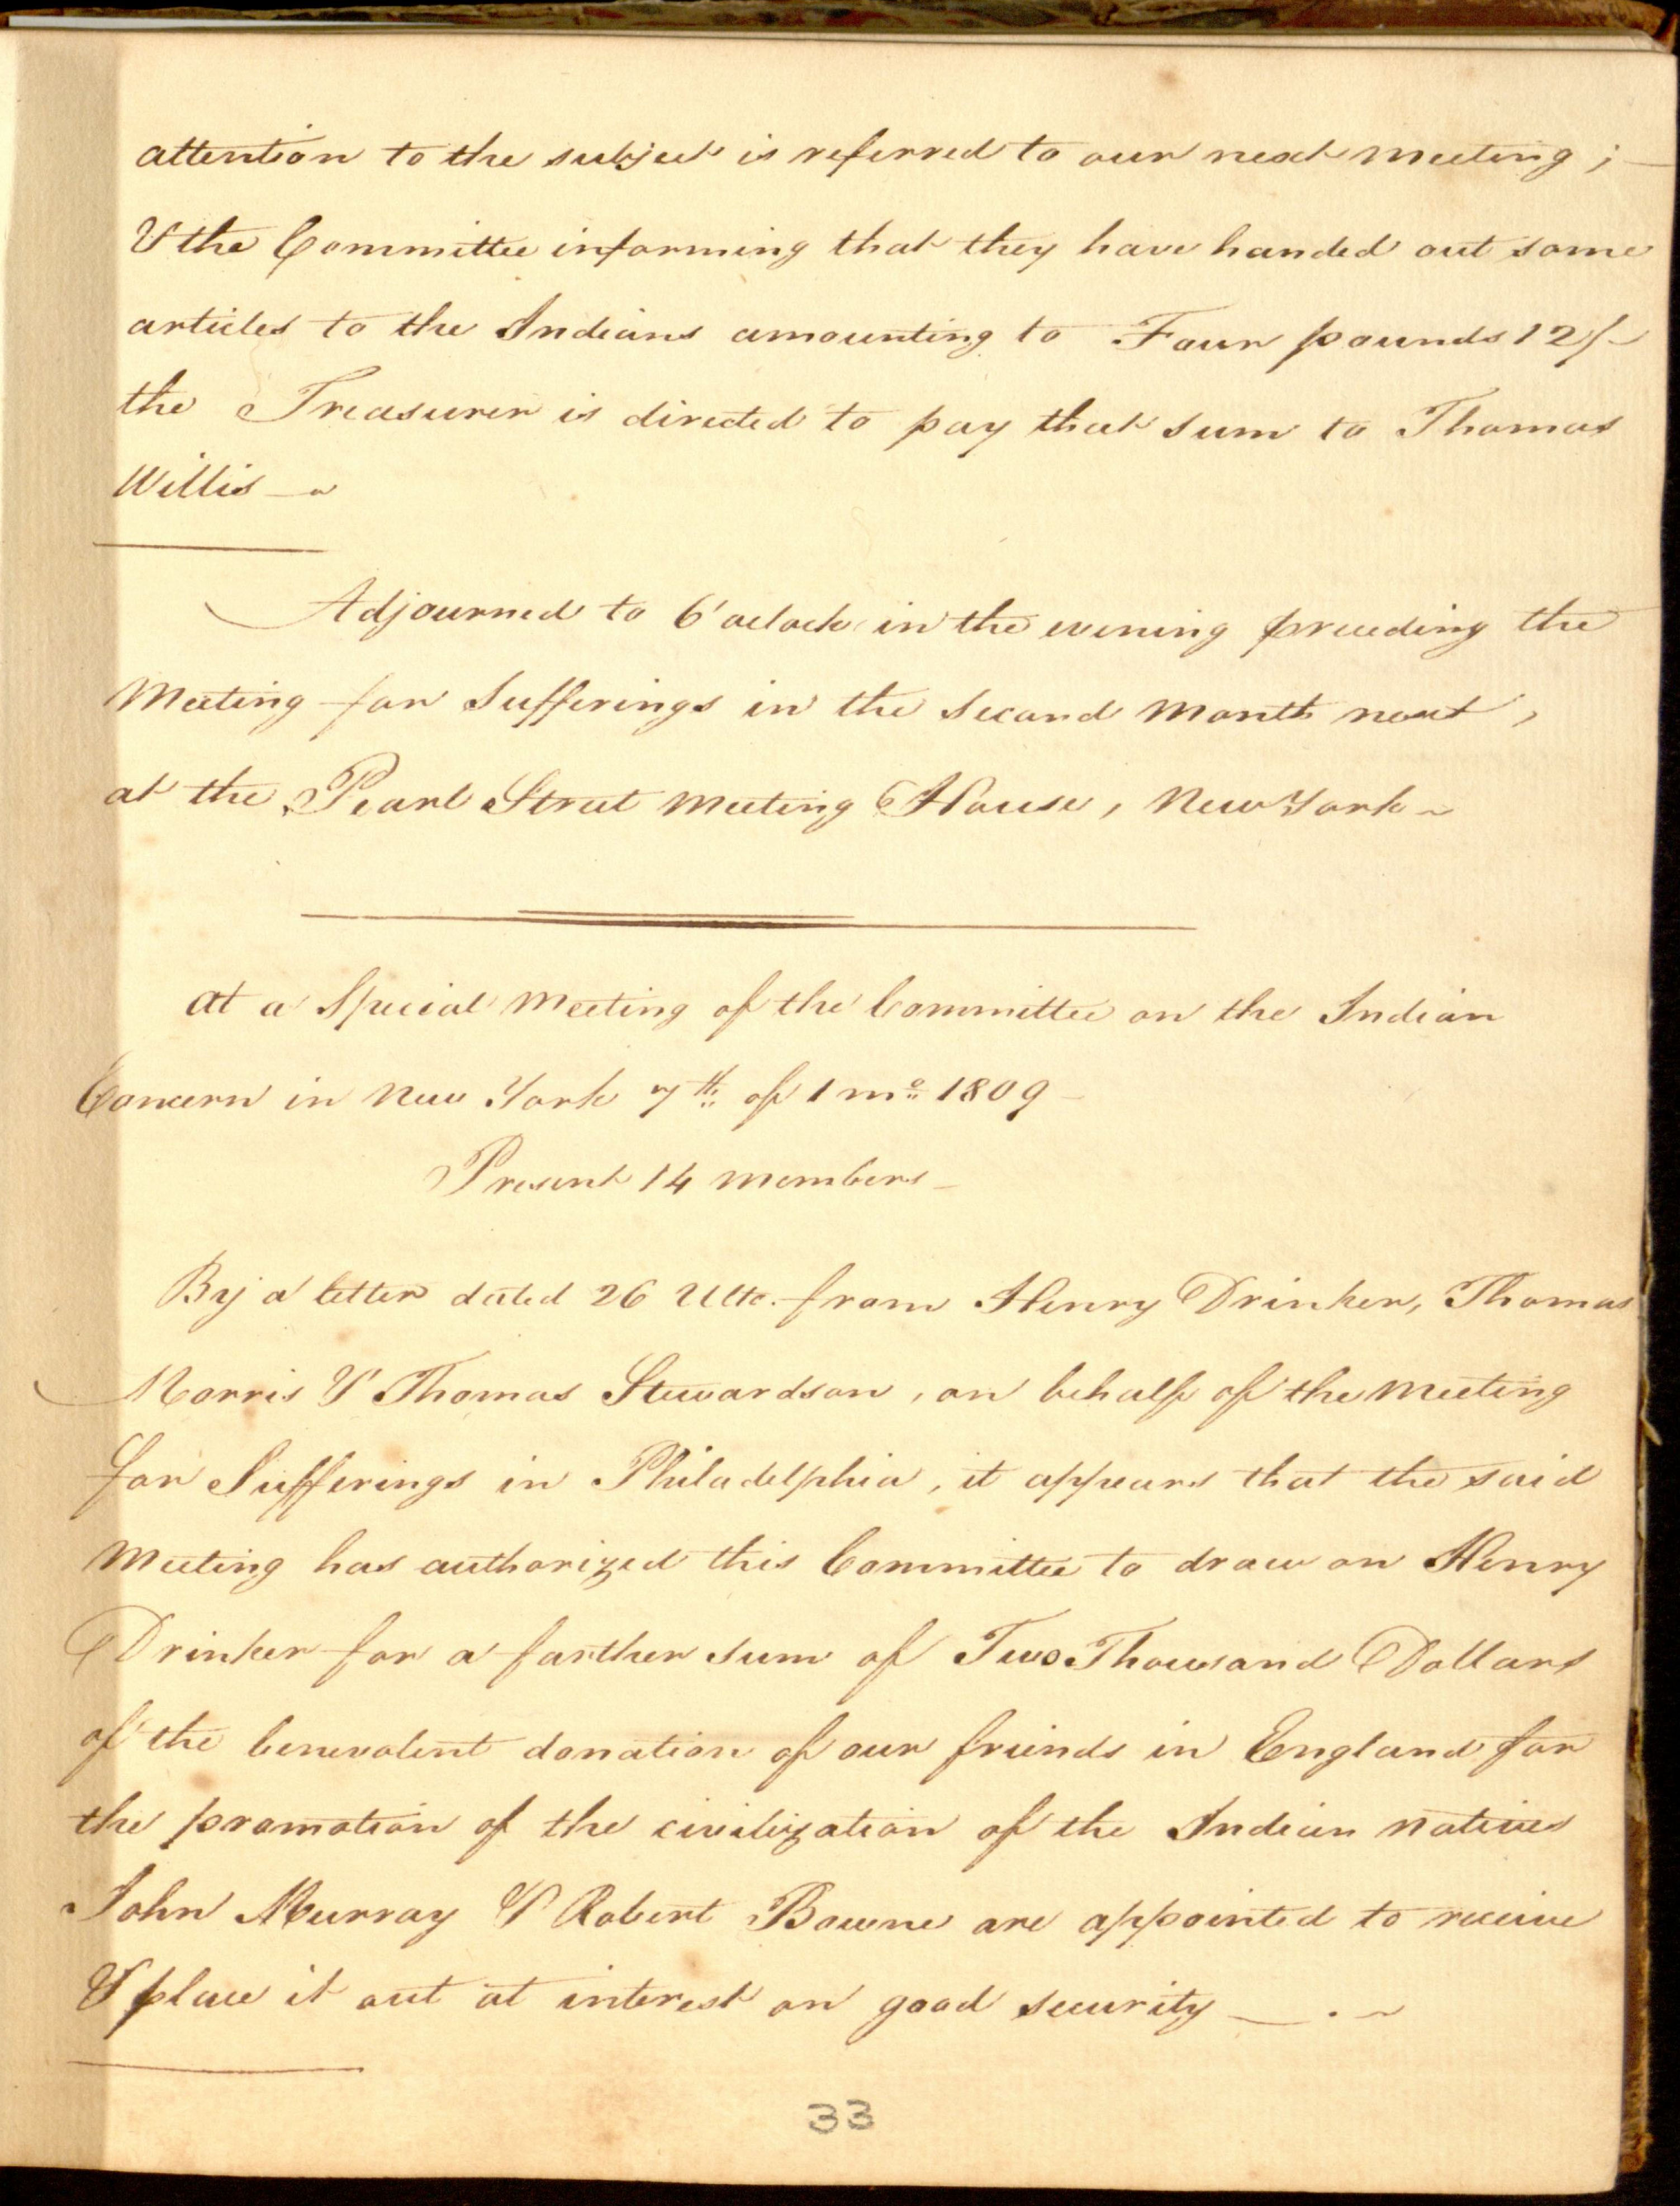 attention to the subject is referred to our next meeting; —
& the Committee informing that they have handed out some
articles to the Indians amounting to Four pounds 12/-
the Treasurer is directed to pay that sum to Thomas
Willis —
Adjourned to 6 'oclock in the evening preceeding the
Meeting for Sufferings in the Second Month next,
at the Pearl Street Meeting House, New York ~
At a Special Meeting of the Committee on the Indian
Concern in New York 7th of 1 mo 1809 —
Present 14 members —
By a letter dated 26 Ulto. from Henry Drinker, Thomas
Morris & Thomas Stewardson, on behalf of the Meeting
for Sufferings in Philadelphia, it appears that the said
Meeting has authorized this Committee to draw on Henry
Drinker for a farther sum of Two Thousand Dollars
of the benevolent donation of our friends in England for
the promotion of the civilization of the Indian natives
John Murray & Robert Bowne are appointed to receive
& place it out at interest on good security — . ~
33